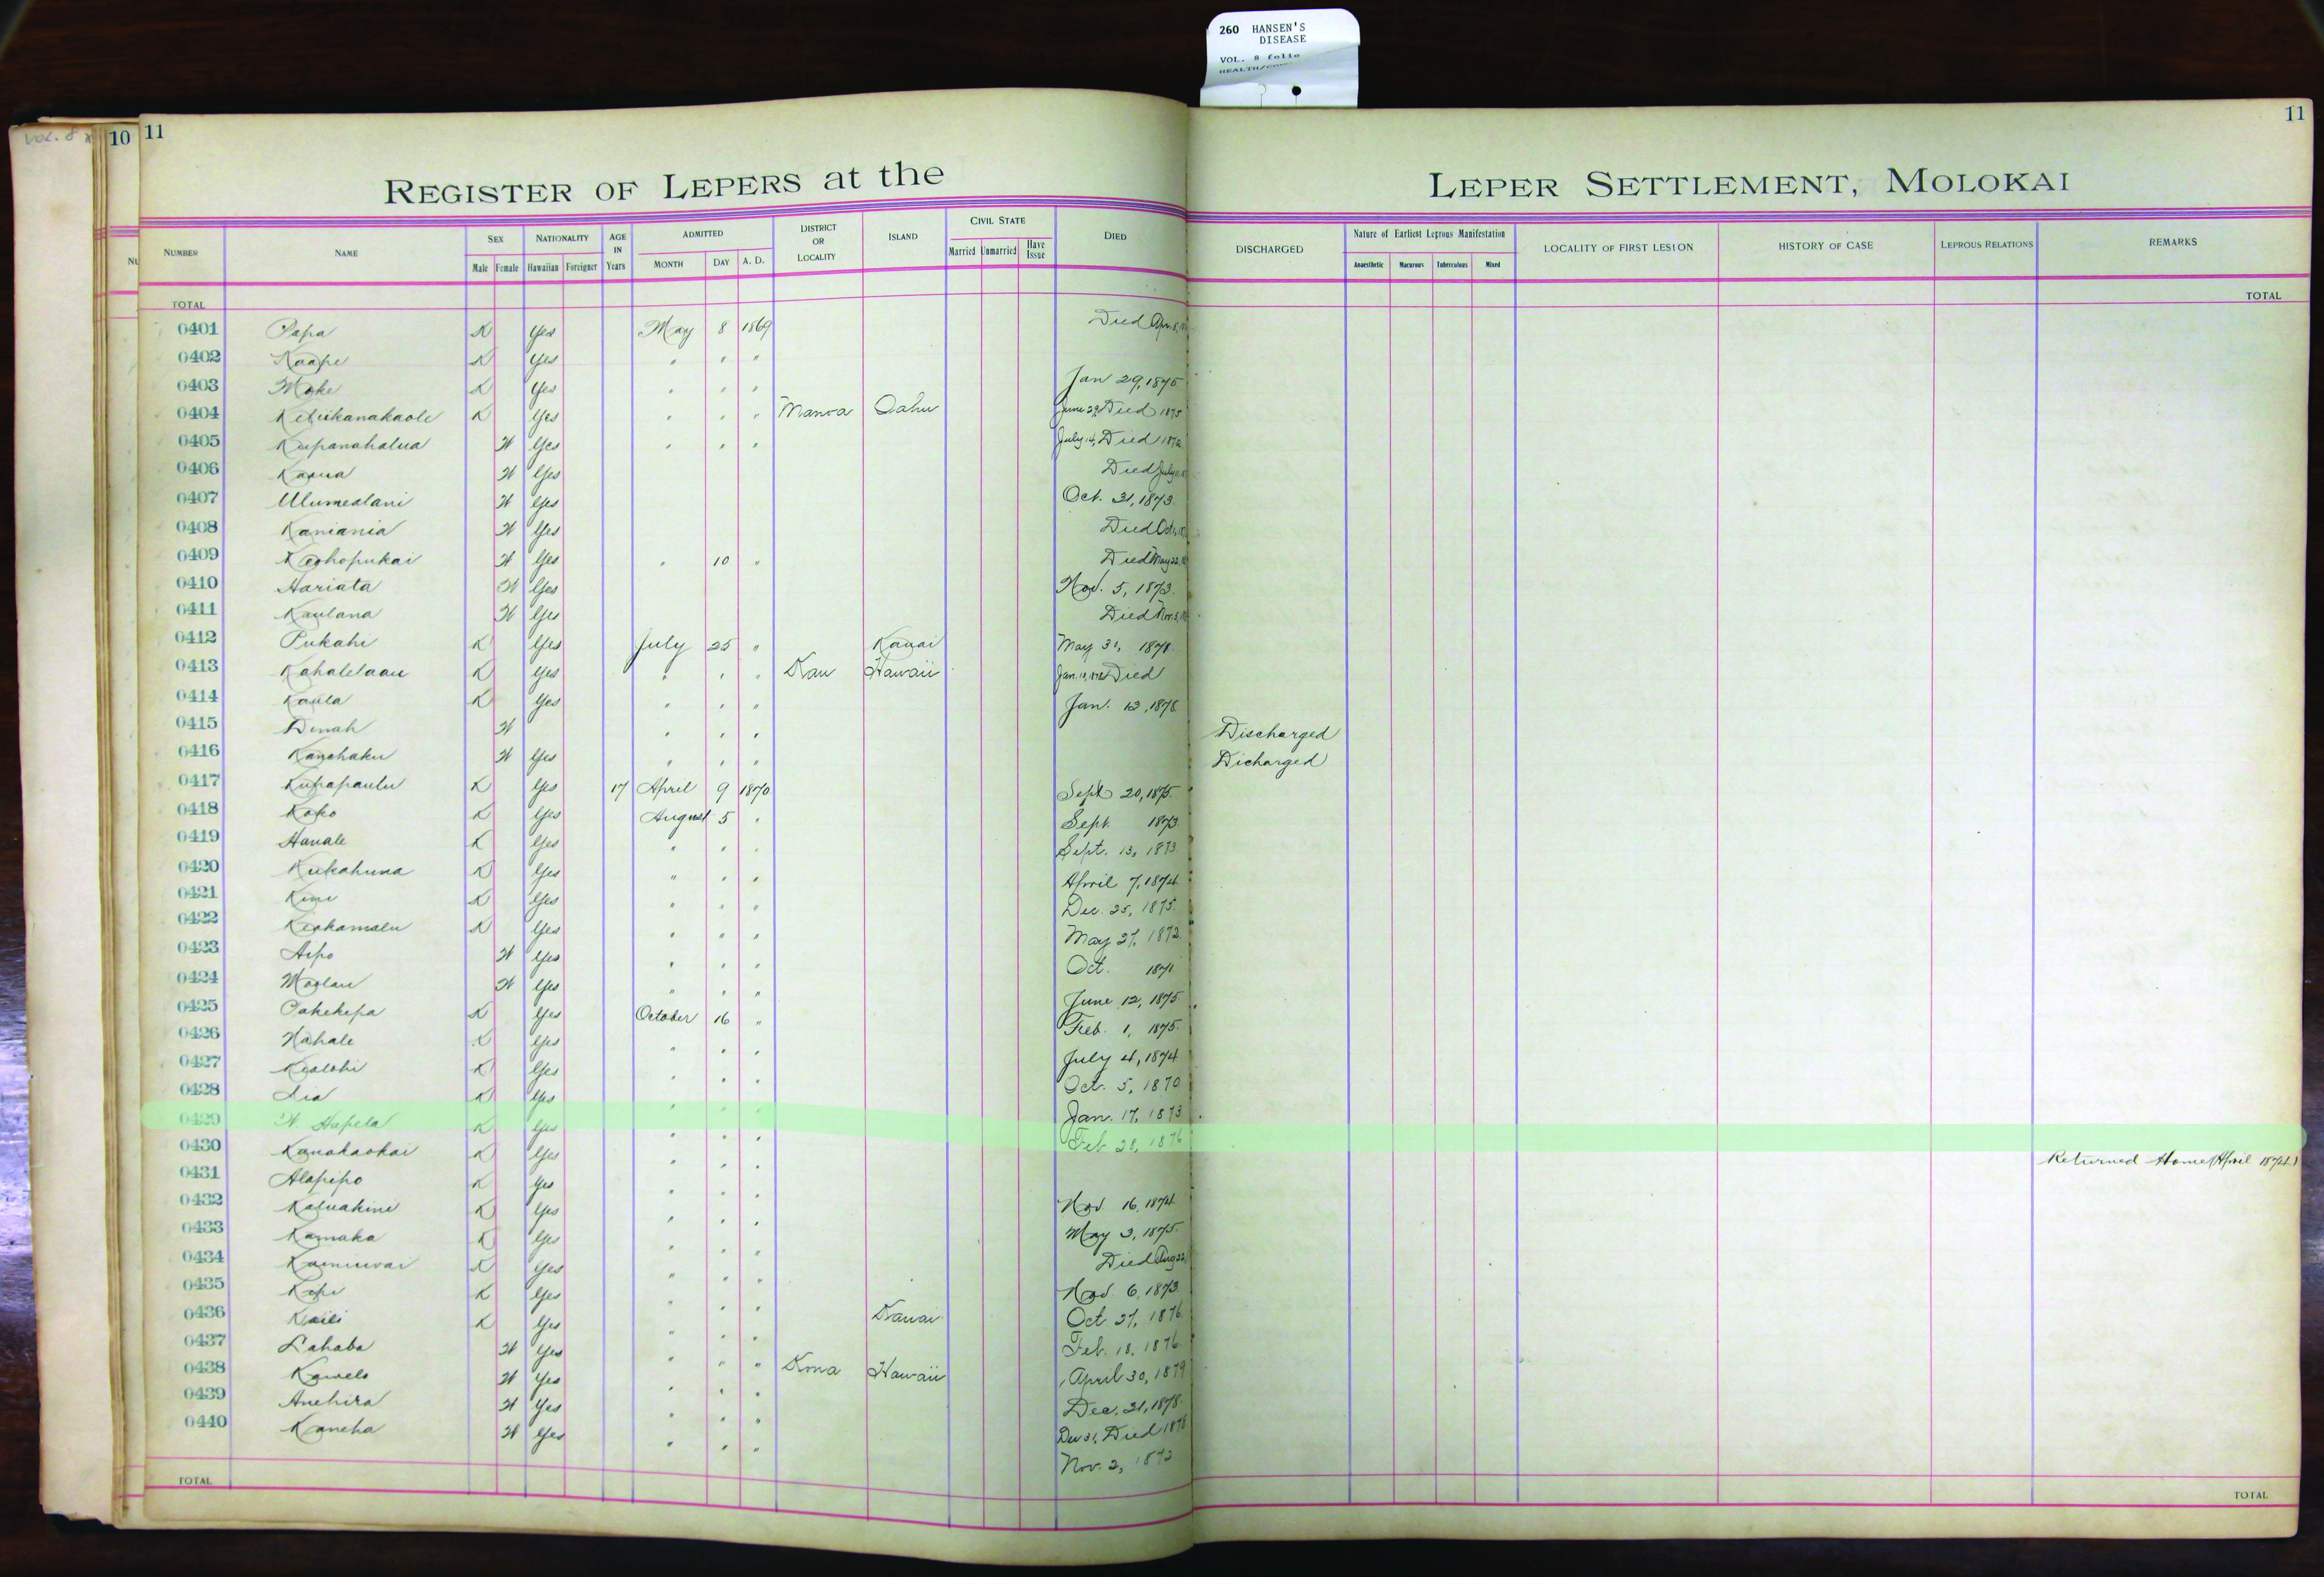 260 HANSEN'S
DISEASE
VOL. 8 folio
VOL. 8
10 11
11
REGISTER OF LEPERS at the LEPER SETTLEMENT, MOLOKAI
NUMBER NAME SEX Male Female NATIONALITY Hawaiian Foreigner AGE IN Years ADMITTED MONTH DAY A. D. DISTRICT OR LOCALITY ISLAND CIVIL STATE Married Unmarried Have Issue DIED DISCHARGED Nature of Earliest Leprous Manifestation Anaesthetic Macurous Tuberculous Mixed LOCALITY OF FIRST LESION HISTORY OF CASE LEPROUS RELATIONS REMARKS
TOTAL TOTAL
0401 Papa K Yes May 8 1869 Died Apr. 8,
0402 Kaape K Yes " " "
0403 Moke K Yes " " " Jan 29, 1875
0404 Keliikanakaole K Yes " " " Manoa Oahu June 29, Died 1875
0405 Kupanahalua W Yes " " " July 14, Died 1872
0406 Kaaua W Yes Died July
0407 Ulumealani W Yes Oct. 31, 1873
0408 Kaniania W Yes Died Oct.
0409 Keohopukai W Yes " 10 " Died May 22,
0410 Hariata W Yes Nov. 5, 1873
0411 Kaulana W Yes Died Nov. 5,
0412 Pukahi K Yes July 25 " Kauai May 31, 1878
0413 Kahalelaau K Yes " " " Kau Hawaii Jan. Died
0414 Kaula K Yes " " " Jan. 12, 1878
0415 Dinah W " " " Discharged
0416 Kanehaku W Yes " " " Dicharged
0417 Kupapaulu K Yes 17 April 9 1870 Sept 20, 1875
0418 Koko K Yes August 5 " Sept. 1873
0419 Hanale K Yes " " " Sept. 13, 1873
0420 Kukahuna K Yes " " " April 7, 1874
0421 Kimi K Yes " " " Dec. 25, 1875
0422 Keohamalu K Yes " " " May 27, 1872
0423 Aipo W Yes " " " Oct. 1871
0424 Moolau W Yes " " " June 12, 1875
0425 Pakekepa K Yes October 16 " Feb. 1, 1875
0426 Nahale K Yes " " " July 4, 1874
0427 Kealohi K Yes " " " Oct. 5, 1870
0428 Lia K Yes " " " Jan. 17, 1873
0429 W. Hapela K Yes " " " Feb 28, 1876
0430 Kanakaokai K Yes " " " Returned Home (April 1874)
0431 Alapipo K Yes " " " Nov 16, 1874
0432 Kaluakini K Yes " " " May 3, 1875
0433 Kamaka K Yes " " " Died Aug 22,
0434 Kaminwai K Yes " " " Nov. 6, 1873
0435 Kepi K Yes " " " Oct. 27, 1876
0436 Kaili K Yes " " " Kauai Feb. 18, 1876
0437 Lahaba W Yes " " " Kona Hawaii April 30, 1879
0438 Kawelo W Yes " " " Dec. 31, 1878
0439 Anehira W Yes " " " Dec 31, Died 1878
0440 Kaneha W Yes " " " Nov. 2, 1872
TOTAL TOTAL